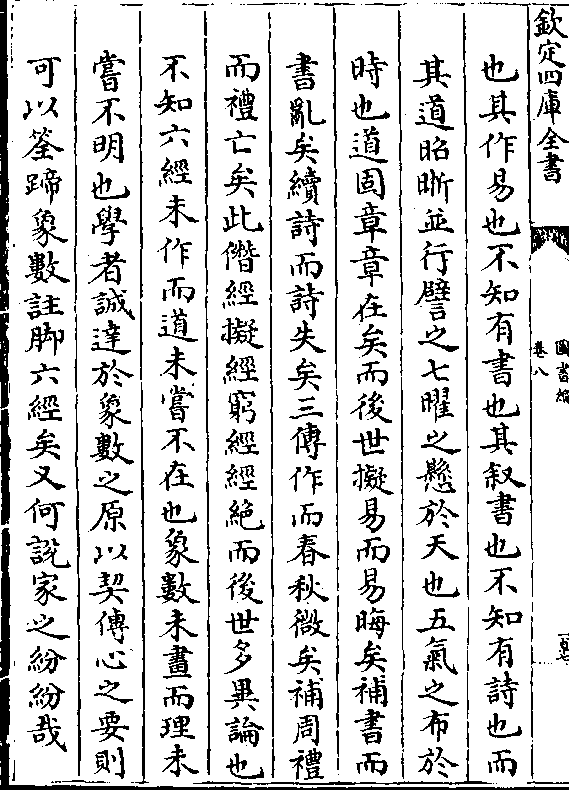 欽定四庫全書
圖書編
卷八
也其作易也不知有書也其叙書也不知有詩也而
其道昭晰並行譬之七曜之懸於天也五氣之布於
時也道固章章在矣而後世擬易而易晦矣補書而
書亂矣續詩而詩失矣三傳作而春秋微矣補周禮
而禮亡矣此僭經擬經窮經經絶而後世多異論也
不知六經未作而道未嘗不在也象數未畫而理未
嘗不明也學者誠達於象數之原以契傳心之要則
可以筌蹄象數註脚六經矣又何說家之紛紛哉